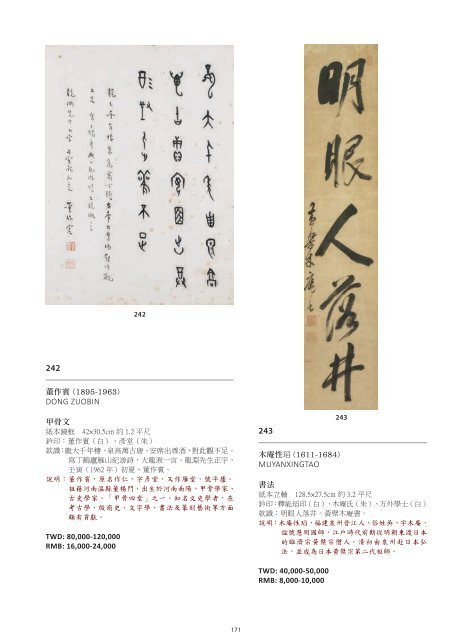 明眼人落井
242
243
242
董作賓 (1895-1963)
DONG ZUOBIN
甲骨文
紙本鏡框 42x30.5cm 約 1.2 平尺
鈐印：董作賓（白）、彥堂（朱）
款識：龍大千年棲，泉高萬古唐。安席出尊酒，對此觀不足。
寫丁鶴廬雁山紀游詩，大龍湫一言。龍淵先生正字，
壬寅（1962 年）初夏。董作賓。
說明：董作賓，原名作仁，字彥堂，又作雁堂，號平廬。
祖籍河南溫縣董楊門，出生於河南南陽。甲骨學家、
古史學家、「甲骨四堂」之一。知名文史學者，在
考古學、殷商史、文字學、書法及篆刻藝術等方面
頗有貢獻。
TWD: 80,000-120,000
RMB: 16,000-24,000
243
木庵性瑫 (1611-1684)
MUYANXINGTAO
書法
紙本立軸 128.5x27.5cm 約 3.2 平尺
鈐印：釋能瑫印（白）、木庵氏（朱）、方外學士（白）
款識：明眼人落井。黃檗木庵書。
說明：木庵性瑫，福建泉州晉江人，俗姓吳，字木庵，
諡號慧明國師，江戶時代前期從明朝東渡日本
的臨濟宗黃檗宗僧人。清初由泉州赴日本弘
法，並成為日本黃檗宗第二代祖師。
TWD: 40,000-50,000
RMB: 8,000-10,000
171